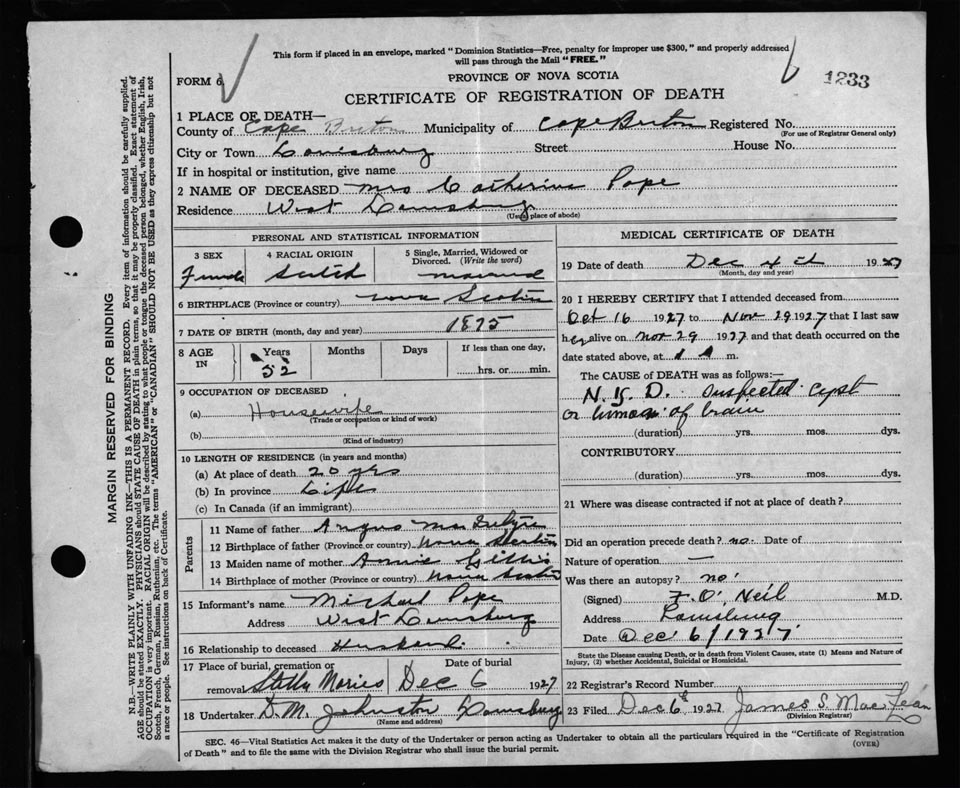 This form if placed in an envelope, marked "Dominion Statistics—Free, penalty for improper use $300," and properly addressed
will pass through the Mail "FREE."
FORM 6
PROVINCE OF NOVA SCOTIA
1233
CERTIFICATE OF REGISTRATION OF DEATH
1 PLACE OF DEATH—
County of Cape Breton Municipality of Cape Breton Registered No.
(For use of Registrar General only)
City or Town Louisburg Street House No.
If in hospital or institution, give name
2 NAME OF DECEASED Mrs Catherine Pope
Residence West Louisburg
(Usual place of abode)
PERSONAL AND STATISTICAL INFORMATION
3 SEX 4 RACIAL ORIGIN 5 Single, Married, Widowed or
Divorced. (Write the word)
Female Scotch Married
6 BIRTHPLACE (Province or country) Nova Scotia
7 DATE OF BIRTH (month, day and year) 1875
8 AGE IN Years Months Days If less than one day,
52 hrs. or min.
9 OCCUPATION OF DECEASED
(a) Housewife
(Trade or occupation or kind of work)
(b)
(Kind of industry)
10 LENGTH OF RESIDENCE (in years and months)
(a) At place of death 20 yrs
(b) In province Life
(c) In Canada (if an immigrant)
Parents
11 Name of father Angus
12 Birthplace of father (Province or country) Nova Scotia
13 Maiden name of mother Annie Gillis
14 Birthplace of mother (Province or country) Nova Scotia
15 Informant's name Michael Pope
Address West Louisburg
16 Relationship to deceased Husband
17 Place of burial, cremation or Date of burial
removal Stella Maries Dec 6 1927
18 Undertaker D. M. Johnston Louisburg
(Name and address)
MEDICAL CERTIFICATE OF DEATH
19 Date of death Dec 4th 1927
(Month, day and year)
20 I HEREBY CERTIFY that I attended deceased from
Oct 16 1927 to Nov 29 1927 that I last saw
her alive on Nov 29 1927 and that death occurred on
date stated above, at 1 A m.
The CAUSE of DEATH was as follows:—
N.Y.D. Suspected Cyst
or tumor of brain
(duration) yrs. mos. dys.
CONTRIBUTORY
(duration) yrs. mos. dys.
21 Where was disease contracted if not at place of death?
Did an operation precede death? no. Date of
Nature of operation —
Was there an autopsy? no
(Signed) F. O'Neil M.D.
Address Louisburg
Date Dec 6/1927
State the Disease causing Death, or in death from Violent Causes, state (1) Means and Nature of
Injury, (2) whether Accidental, Suicidal or Homicidal.
22 Registrar's Record Number
23 Filed Dec 6 1927 James S. MacLean
(Division Registrar)
SEC. 46—Vital Statistics Act makes it the duty of the Undertaker or person acting as Undertaker to obtain all the particulars required in the "Certificate of Registration
of Death" and to file the same with the Division Registrar who shall issue the burial permit.
(OVER)
MARGIN RESERVED FOR BINDING
N.B. WRITE PLAINLY WITH UNFADING INK—THIS IS A PERMANENT RECORD. Every item of information should be carefully supplied.
AGE should be stated EXACTLY. PHYSICIANS should STATE CAUSE OF DEATH in plain terms, so that it may be properly classified. Exact statement of
OCCUPATION is very important. RACIAL ORIGIN will be described by stating to what people or tongue the deceased person belonged, whether English, Irish,
Scotch, French, German, Russian, Ruthenian, etc. The terms "AMERICAN" or "CANADIAN" SHOULD NOT BE USED as they express citizenship but not
a race or people. See instructions on back of Certificate.